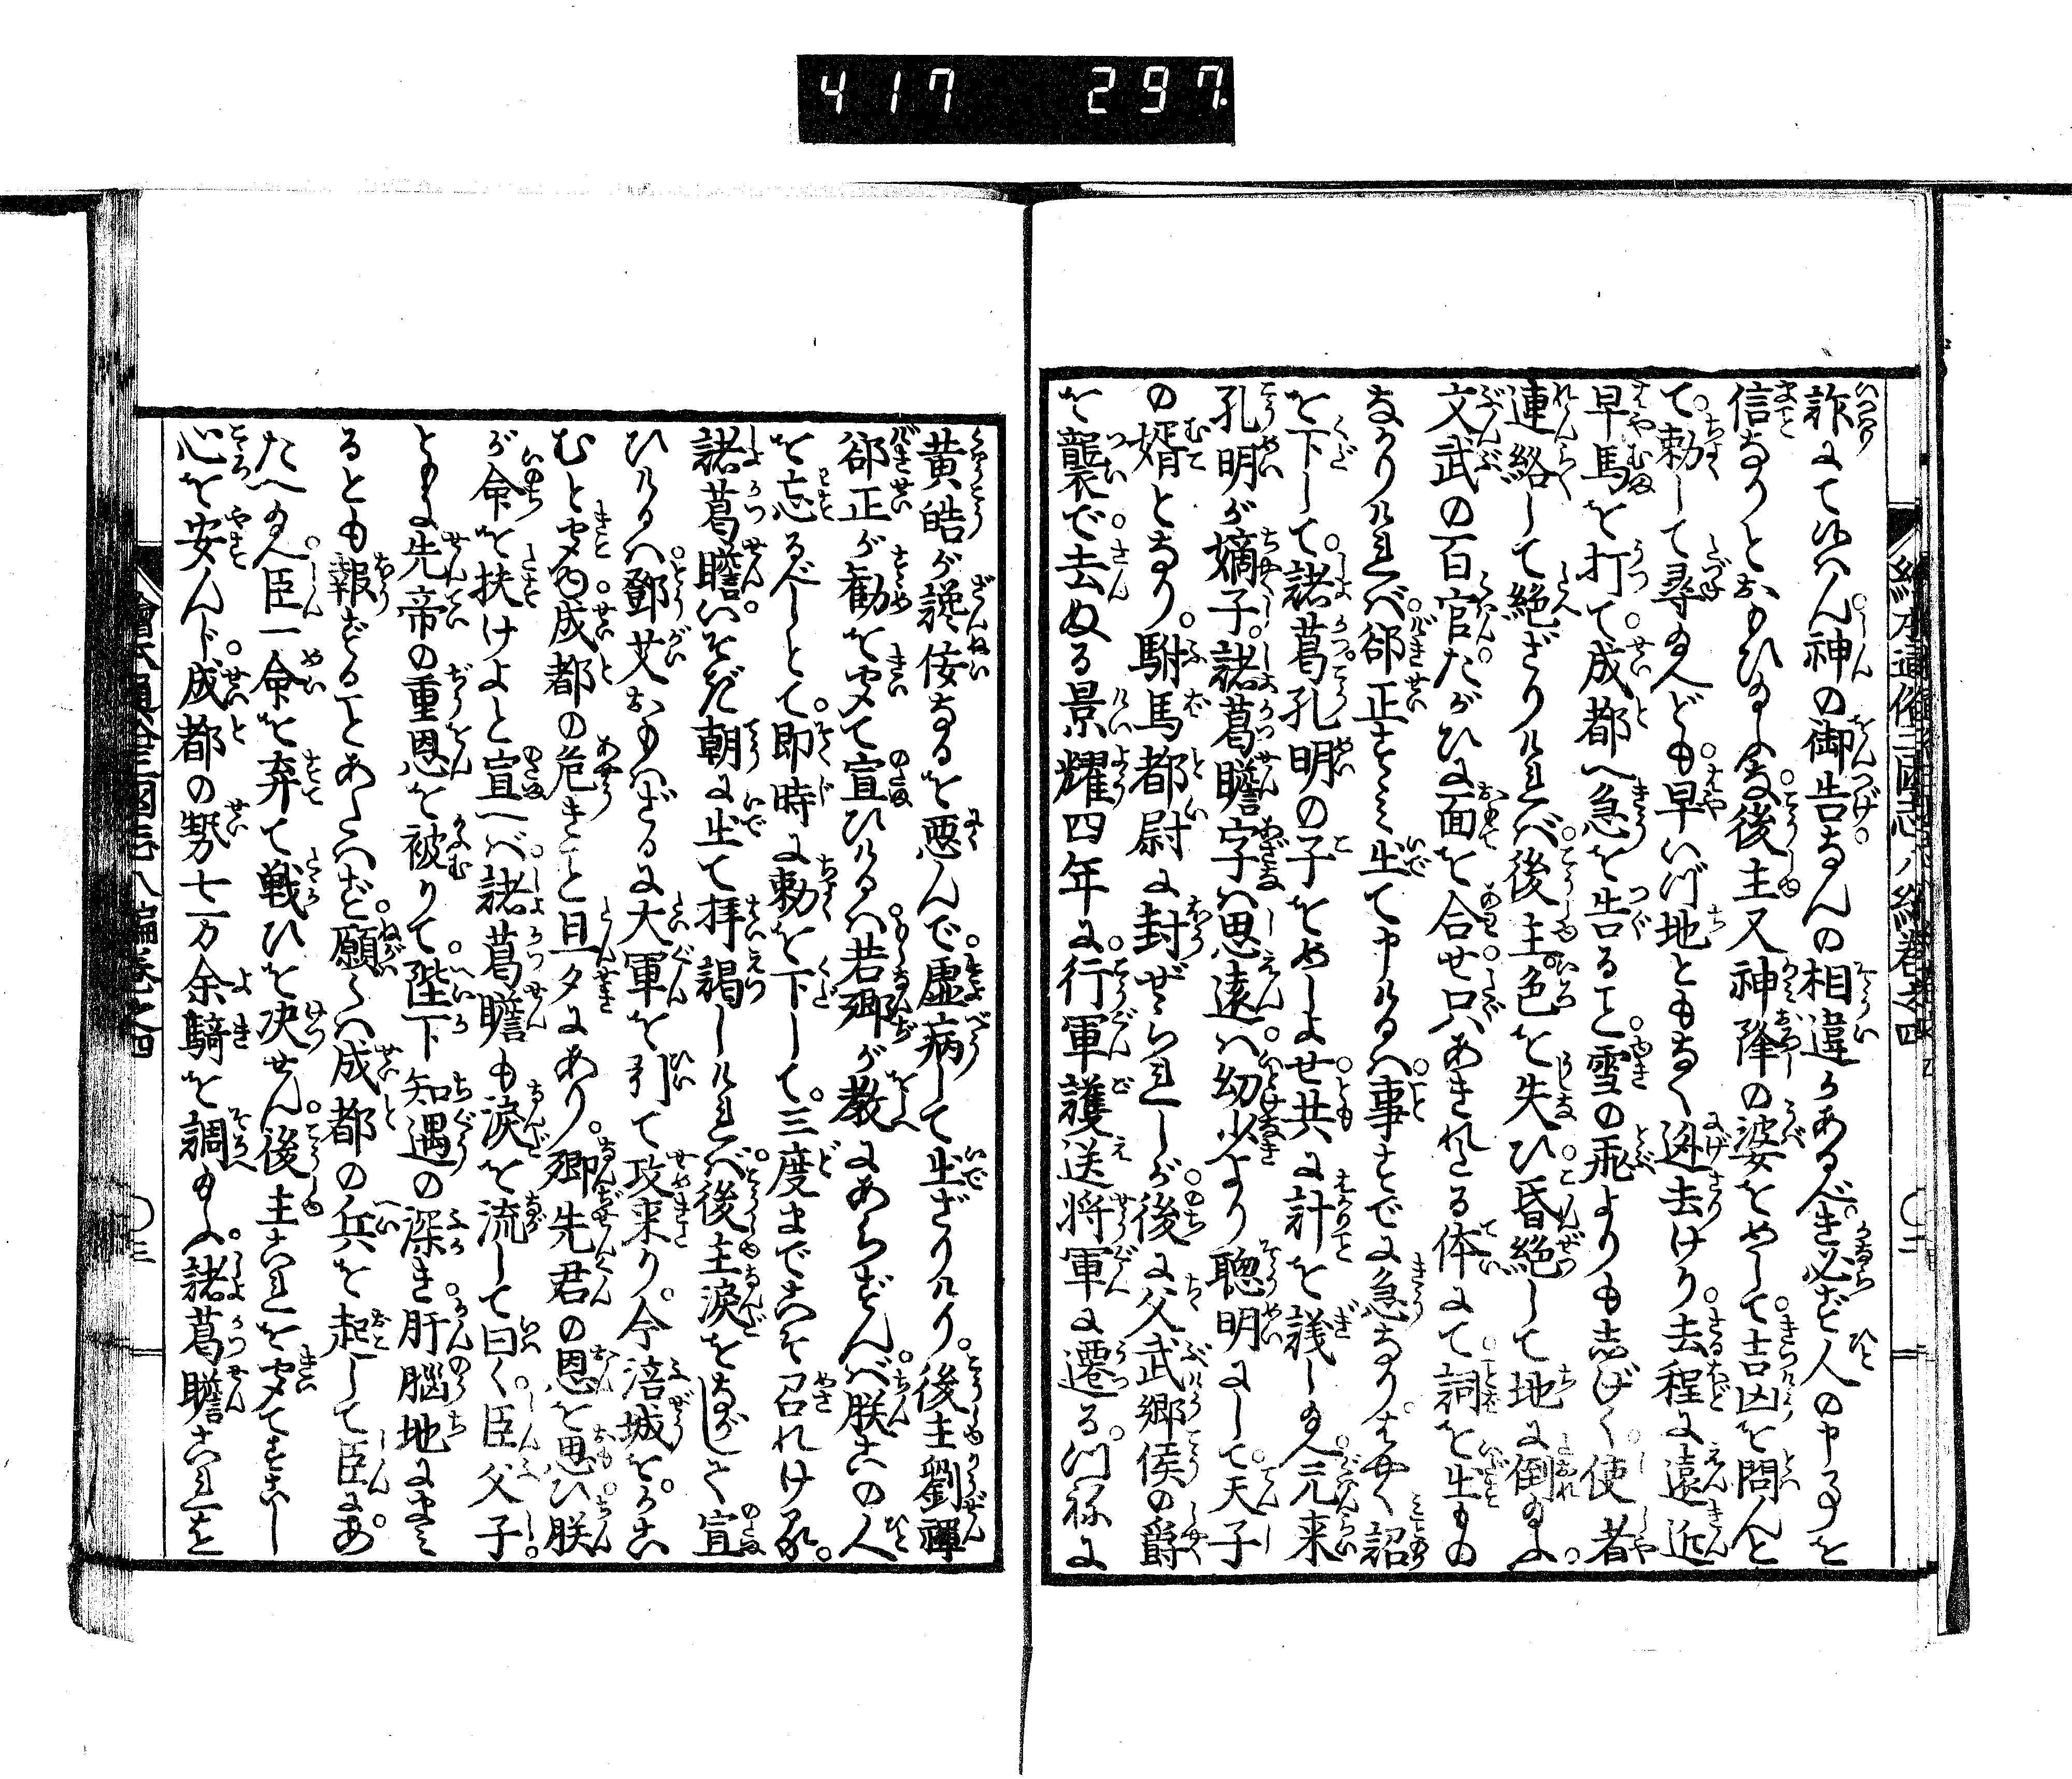 417 297.
詐にて候はん神の御告なんの相違かあるべき必ず人の申す事を
信なりとおもひ玉ふな後主又神降の婆をめして吉凶を問んと
て勅して尋玉へども早いづ地ともなく迯去けり去程に遠近
早馬を打て成都へ急を告ること雪の飛よりも志げく使者
連絡して絶ざりければ後主色を失ひ昏絶して地に倒玉ふ
文武の百官たがひに面を合せ只あきれたる体にて詞を出もの
なかりければ郤正すすみ出て申けるハ事すでに急なりはやく詔
を下して諸葛孔明の子をめしよせ共に計を議し玉へ元来
孔明が嫡子諸葛瞻字ハ思遠ハ幼少より聰明にして天子
の婿となり駙馬都尉に封ぜられしが後に父武郷侯の爵
を襲で去ぬる景耀四年に行軍護送将軍に遷るつねに
黄皓が讒佞なるを悪んで虚病して出ざりけり後主劉禪
郤正が勧を聞て宣ひけるハ若卿が教にあらずんば朕この人
を忘るべしとて即時に勅を下して三度までこそ召れけれ
諸葛瞻いそぎ朝に出て拝謁しければ後主涙をながして宣
ひけるハ鄧艾おもはざるに大軍を引て攻来り今涪城をかこ
むと聞成都の危きこと旦夕にあり卿先君の恩を思ひ朕
が命を扶けよと宣へば諸葛瞻も涙を流して曰く臣父子
ともに先帝の重恩を被りて陛下知遇の深き肝脳地にまみ
るとも報ずることあたハず願くハ成都の兵を起して臣にあ
たへ玉へ臣一命を弃て戦ひを决せん後主これを聞てすこし
心を安んじ成都の勢七万余騎を調玉ふ諸葛瞻これを